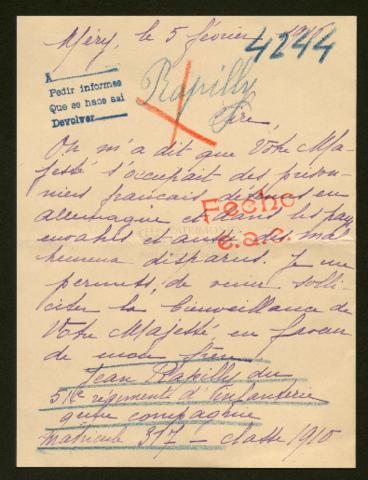 Méry, le 5 février 1916
4244
A
Pedir informes
Que se hace asi
Devolver
Rapilly
Sire,
On m'a dit que Votre Ma-
jesté s'occupait des prison-
niers français détenus en
allemagne et dans les pays
envahis et aussi des mal-
heureux disparus. Je me
Fecho
e.a.c.
permets, de venir solli-
citer la bienveillance de
Votre Majesté, en faveur
de mon frère
Jean Rapilly du
51e régiments d'Infanterie
compagnie
matricule 317 - classe 1910